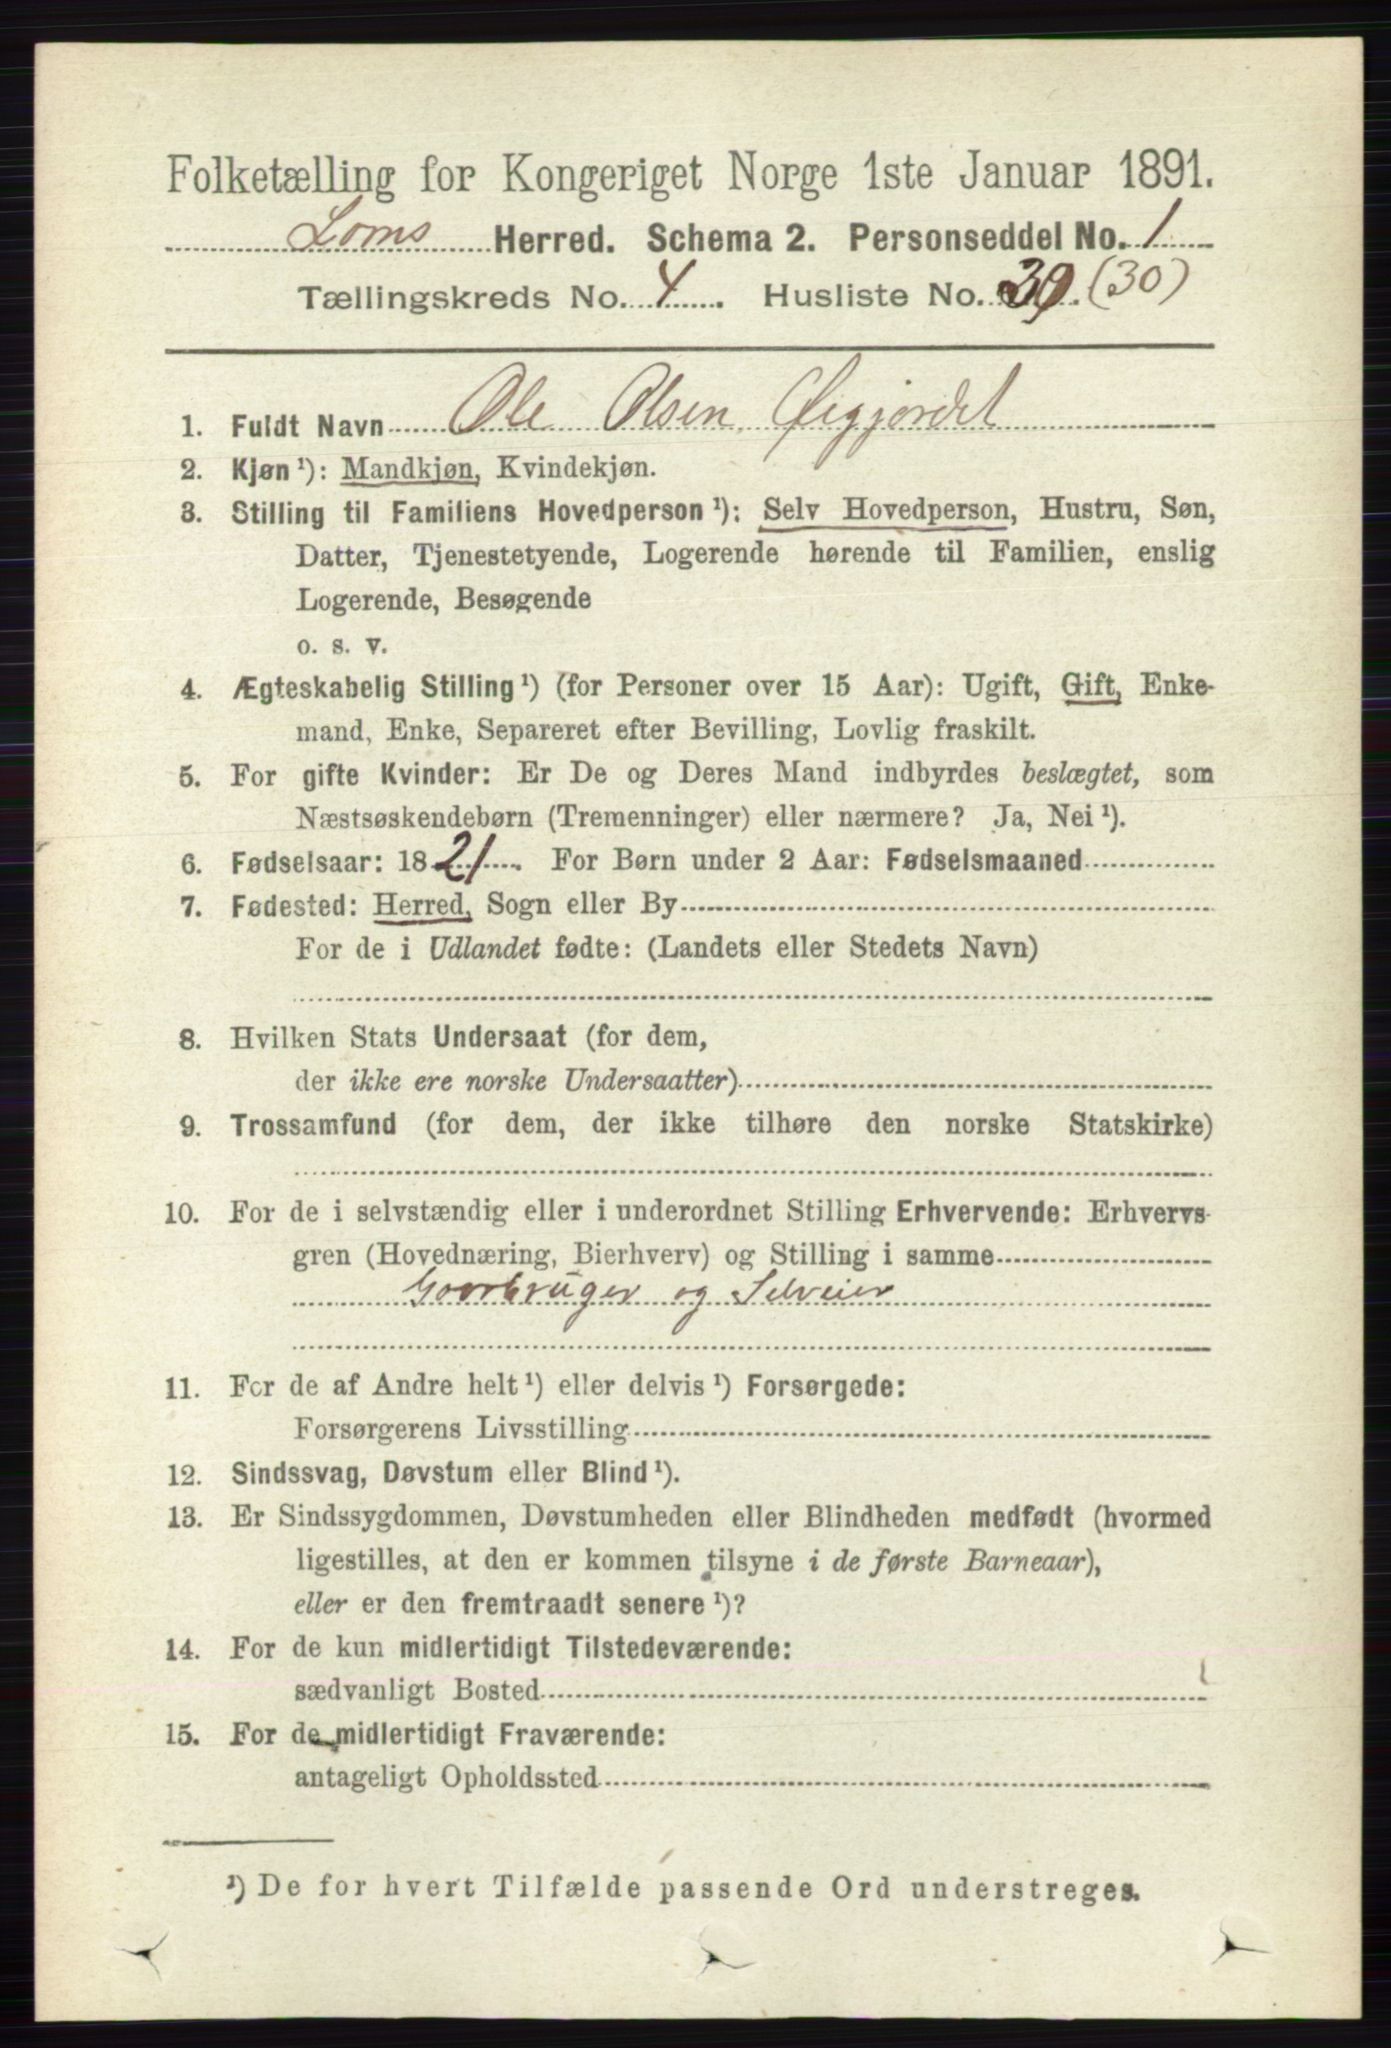 Folketælling for Kongeriget Norge 1ste Januar 1891.
Loms Herred. Schema 2. Personseddel No. 1
Tællingskreds No. 4. Husliste No. 39. (30)
1. Fuldt Navn Ole Olsen Øigjordet
2. Kjøn ¹): Mandkjøn, Kvindekjøn.
3. Stilling til Familiens Hovedperson ¹): Selv Hovedperson, Hustru, Søn,
Datter, Tjenestetyende, Logerende hørende til Familien, enslig
Logerende, Besøgende
o. s. v.
4. Ægteskabelig Stilling ¹) (for Personer over 15 Aar): Ugift, Gift, Enke-
mand, Enke, Separeret efter Bevilling, Lovlig fraskilt.
5. For gifte Kvinder: Er De og Deres Mand indbyrdes beslægtet, som
Næstsøskendebørn (Tremenninger) eller nærmere? Ja, Nei ¹).
6. Fødselsaar: 1821. For Børn under 2 Aar: Fødselsmaaned
7. Fødested: Herred, Sogn eller By
For de i Udlandet fødte: (Landets eller Stedets Navn)
8. Hvilken Stats Undersaat (for dem,
der ikke ere norske Undersaatter)
9. Trossamfund (for dem, der ikke tilhøre den norske Statskirke)
10. For de i selvstændig eller i underordnet Stilling Erhvervende: Erhvervs-
gren (Hovednæring, Bierhverv) og Stilling i samme
Gaardbruger og Selveier
11. For de af Andre helt ¹) eller delvis ¹) Forsørgede:
Forsørgerens Livsstilling
12. Sindssvag, Døvstum eller Blind ¹).
13. Er Sindssygdommen, Døvstumheden eller Blindheden medfødt (hvormed
ligestilles, at den er kommen tilsyne i de første Barneaar),
eller er den fremtraadt senere ¹)?
14. For de kun midlertidigt Tilstedeværende:
sædvanligt Bosted
15. For de midlertidigt Fraværende:
antageligt Opholdssted
¹) De for hvert Tilfælde passende Ord understreges.